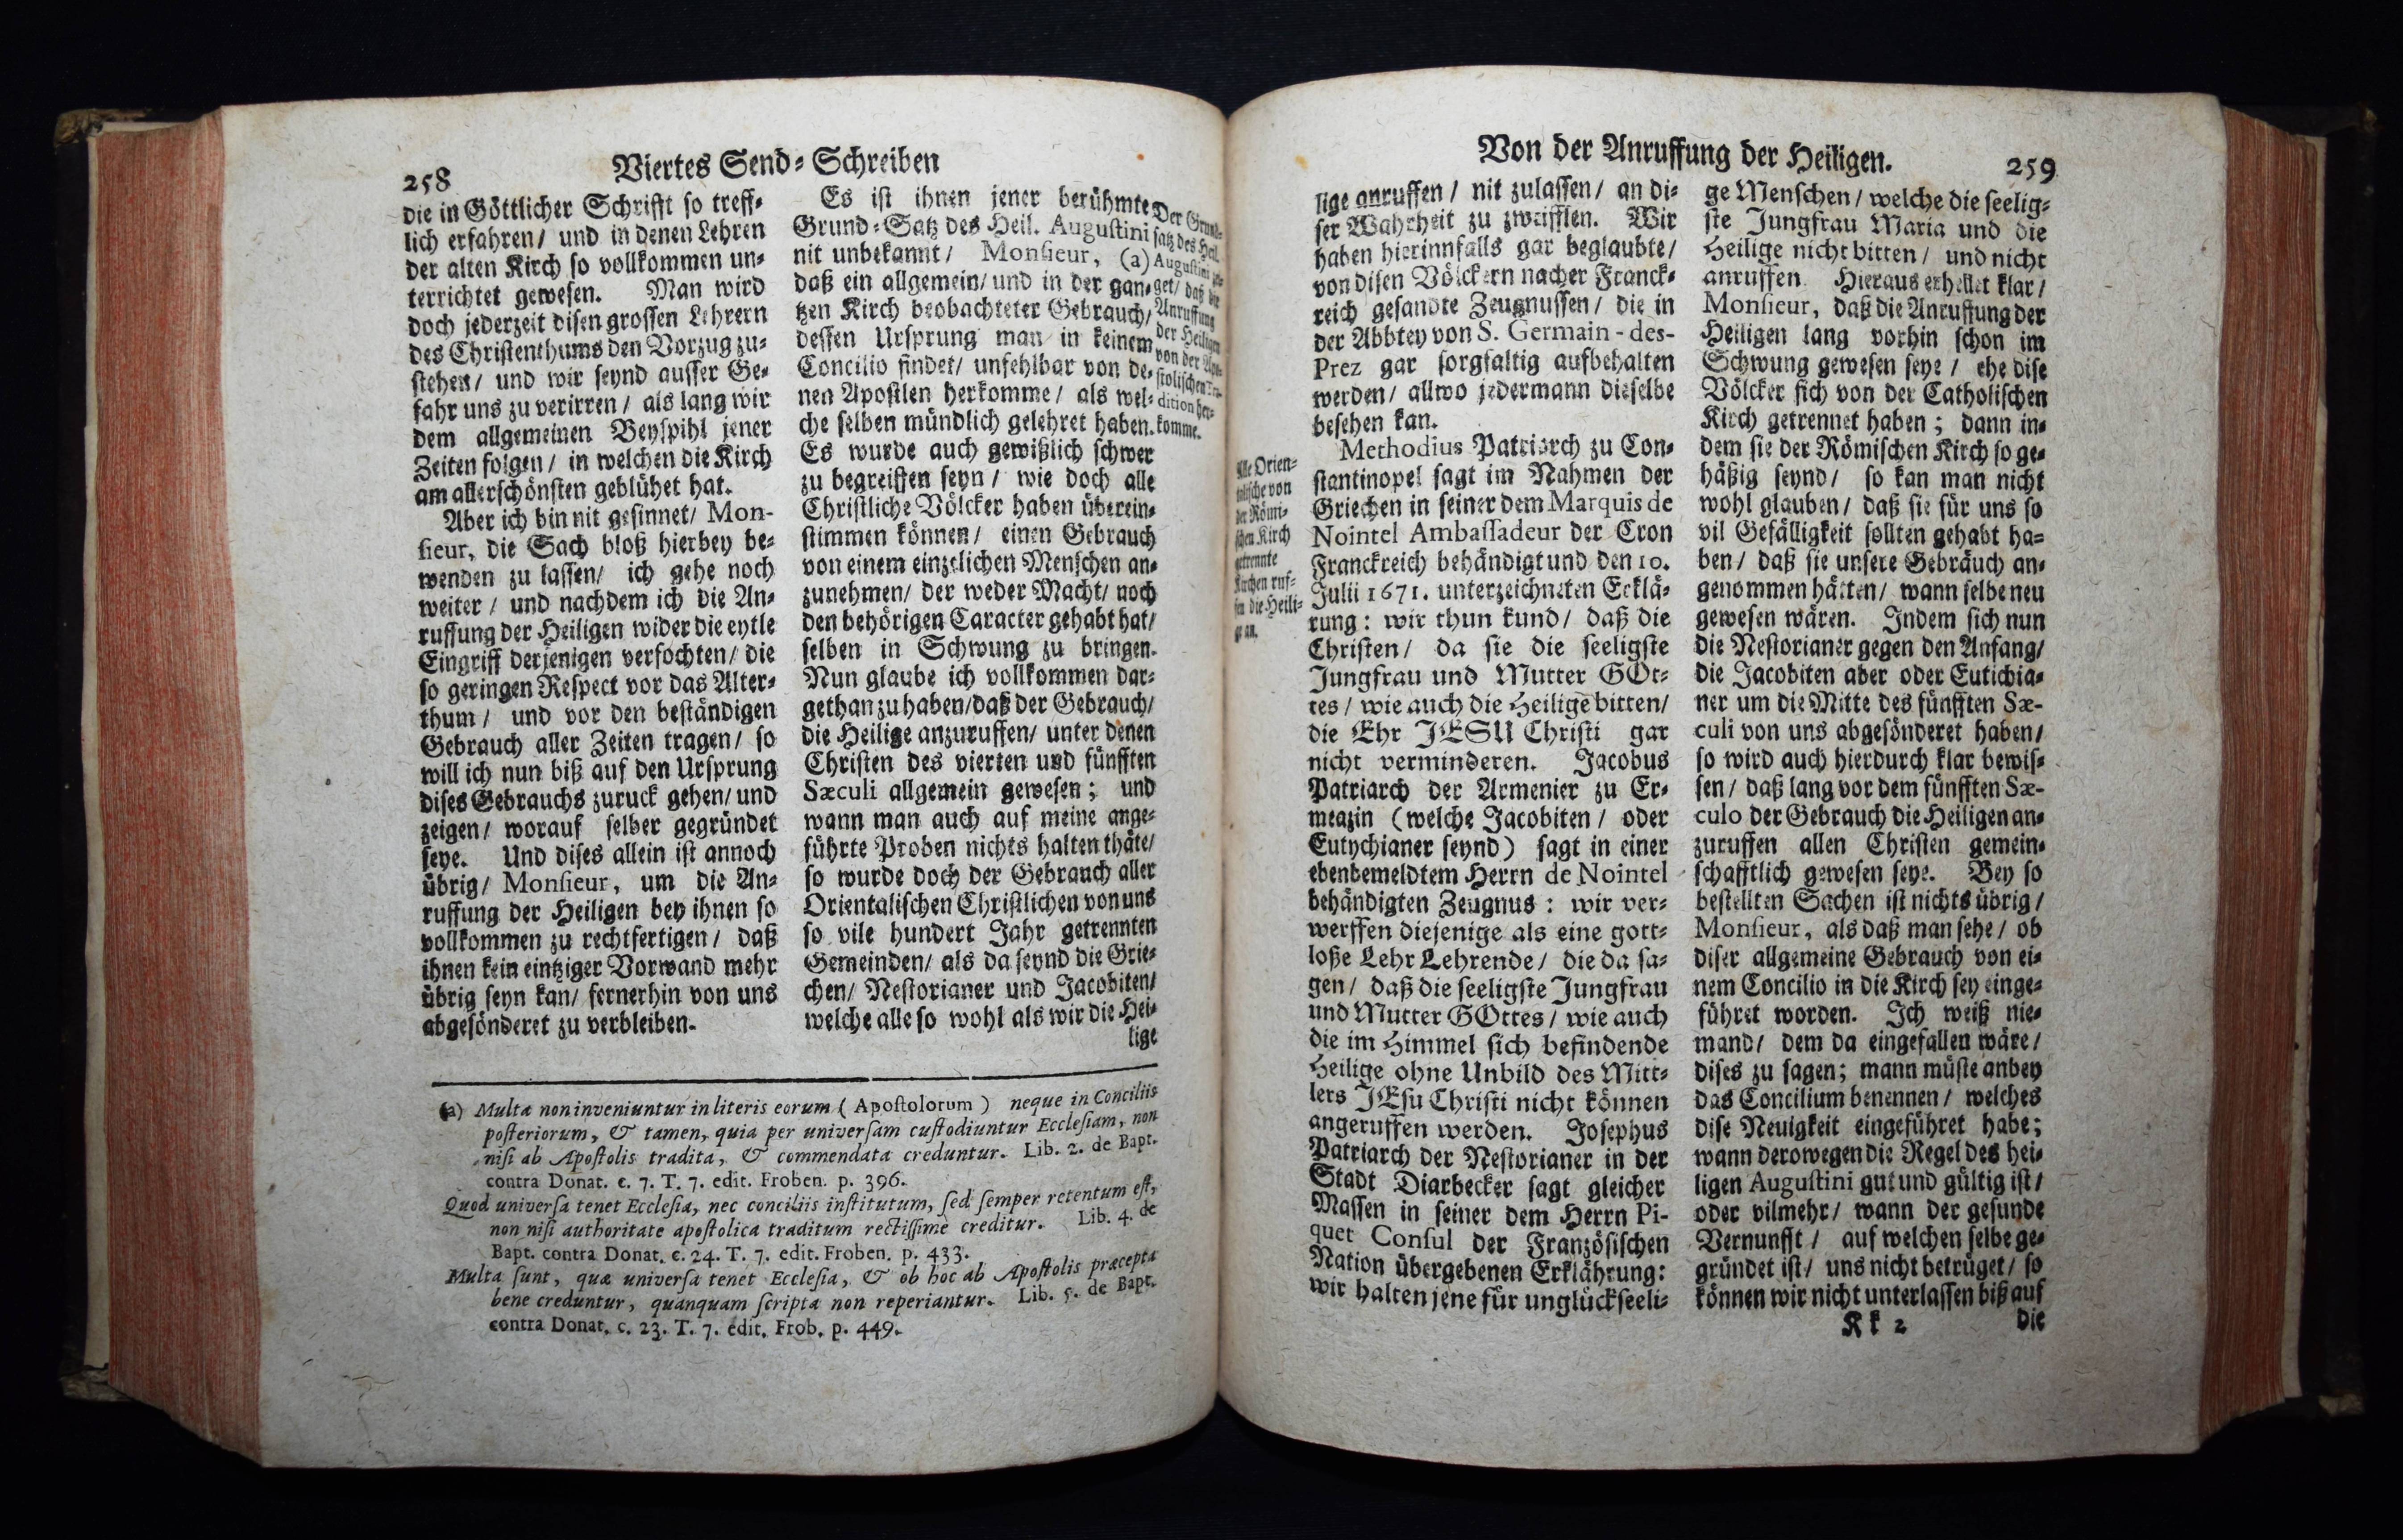 258
Viertes Send-Schreiben
die in Göttlicher Schrifft so treff-
lich erfahren / und in denen Lehren
der alten Kirch so vollkommen un-
terrichtet gewesen. Man wird
doch jederzeit disen grossen Lehrern
des Christenthums den Vorzug zu-
stehen / und wir seynd ausser Ge-
fahr uns zu verirren / als lang wir
dem allgemeinen Beyspihl jener
Zeiten folgen / in welchen die Kirch
am allerschönsten geblühet hat.
Aber ich bin nit gesinnet / Mon-
sieur, die Sach bloß hierbey be-
wenden zu lassen / ich gehe noch
weiter / und nachdem ich die An-
ruffung der Heiligen wider die eytle
Eingriff derjenigen verfochten / die
so geringen Respect vor das Alter-
thum / und vor den beständigen
Gebrauch aller Zeiten tragen / so
will ich nun biß auf den Ursprung
dises Gebrauchs zuruck gehen / und
zeigen / worauf selber gegründet
seye. Und dises allein ist annoch
übrig / Monsieur, um die An-
ruffung der Heiligen bey ihnen so
vollkommen zu rechtfertigen / daß
ihnen kein eintziger Vorwand mehr
übrig seyn kan / fernerhin von uns
abgesönderet zu verbleiben.
Es ist ihnen jener berühmte
Grund-Satz des Heil. Augustini
nit unbekannt / Monsieur, (a)
daß ein allgemein / und in der gan-
tzen Kirch beobachteter Gebrauch /
dessen Ursprung man in keinem
Concilio findet / unfehlbar von de-
nen Apostlen herkomme / als wel-
che selben mündlich gelehret haben.
Es wurde auch gewißlich schwer
zu begreiffen seyn / wie doch alle
Christliche Völcker haben überein-
stimmen können / einen Gebrauch
von einem einzelichen Menschen an-
zunehmen / der weder Macht / noch
den behörigen Caracter gehabt hat /
selben in Schwung zu bringen.
Nun glaube ich vollkommen dar-
gethan zu haben / daß der Gebrauch /
die Heilige anzuruffen / unter denen
Christen des vierten und fünfften
Sæculi allgemein gewesen; und
wann man auch auf meine ange-
führte Proben nichts halten thäte /
so wurde doch der Gebrauch aller
Orientalischen Christlichen von uns
so vile hundert Jahr getrennten
Gemeinden / als da seynd die Grie-
chen / Nestorianer und Jacobiten /
welche alle so wohl als wir die Hei-
lige
Der Grund-
satz des Heil.
Augustini
get / daß die
Anruffung
der Heiligen
von der Apo-
stolischen Tra-
dition her-
komme.
(a) Multa non inveniuntur in literis eorum ( Apostolorum ) neque in Conciliis
posteriorum, & tamen, quia per universam custodiuntur Ecclesiam, non
nisi ab Apostolis tradita, & commendata creduntur. Lib. 2. de Bapt.
contra Donat. c. 7. T. 7. edit. Froben. p. 396.
Quod universa tenet Ecclesia, nec conciliis institutum, sed semper retentum est,
non nisi authoritate apostolica traditum rectissimè creditur. Lib. 4. de
Bapt. contra Donat. c. 24. T. 7. edit. Froben. p. 433.
Multa sunt, quæ universa tenet Ecclesia, & ob hoc ab Apostolis præcepta
bene creduntur, quanquam scripta non reperiantur. Lib. 5. de Bapt.
contra Donat. c. 23. T. 7. edit. Frob. p. 449.
Von der Anruffung der Heiligen.
259
lige anruffen / nit zulassen / an di-
ser Wahrheit zu zweifflen. Wir
haben hierinnfalls gar beglaubte /
von disen Völckern nacher Franck-
reich gesandte Zeugnussen / die in
der Abbtey von S. Germain-des-
Prez gar sorgfaltig aufbehalten
werden / allwo jedermann dieselbe
besehen kan.
Methodius Patriarch zu Con-
stantinopel sagt im Nahmen der
Griechen in seiner dem Marquis de
Nointel Ambassadeur der Cron
Franckreich behändigt und den 10.
Julii 1671. unterzeichneten Erklä-
rung: wir thun kund / daß die
Christen / da sie die seeligste
Jungfrau und Mutter GOt-
tes / wie auch die Heilige bitten /
die Ehr JESU Christi gar
nicht verminderen. Jacobus
Patriarch der Armenier zu Er-
meazin (welche Jacobiten / oder
Eutychianer seynd) sagt in einer
ebenbemeldtem Herrn de Nointel
behändigten Zeugnus: wir ver-
werffen diejenige als eine gott-
loße Lehr Lehrende / die da sa-
gen / daß die seeligste Jungfrau
und Mutter GOttes / wie auch
die im Himmel sich befindende
Heilige ohne Unbild des Mitt-
lers JEsu Christi nicht können
angeruffen werden. Josephus
Patriarch der Nestorianer in der
Stadt Diarbecker sagt gleicher
Massen in seiner dem Herrn Pi-
quet Consul der Französischen
Nation übergebenen Erklährung:
wir halten jene für unglückseeli-
Alle Orien-
talische von
der Römi-
schen Kirch
getrennte
Kirchen ruf-
fen die Heili-
gen an.
ge Menschen / welche die seelig-
ste Jungfrau Maria und die
Heilige nicht bitten / und nicht
anruffen Hieraus erhellet klar /
Monsieur, daß die Anruffung der
Heiligen lang vorhin schon im
Schwung gewesen seye / ehe dise
Völcker sich von der Catholischen
Kirch getrennet haben; dann in-
dem sie der Römischen Kirch so ge-
häßig seynd / so kan man nicht
wohl glauben / daß sie für uns so
vil Gefälligkeit sollten gehabt ha-
ben / daß sie unsere Gebräuch an-
genommen hätten / wann selbe neu
gewesen wären. Indem sich nun
die Nestorianer gegen den Anfang /
die Jacobiten aber oder Eutichia-
ner um die Mitte des fünfften Sæ-
culi von uns abgesönderet haben /
so wird auch hierdurch klar bewis-
sen / daß lang vor dem fünfften Sæ-
culo der Gebrauch die Heiligen an-
zuruffen allen Christen gemein-
schafftlich gewesen seye. Bey so
bestellten Sachen ist nichts übrig /
Monsieur, als daß man sehe / ob
diser allgemeine Gebrauch von ei-
nem Concilio in die Kirch sey einge-
führet worden. Ich weiß nie-
mand / dem da eingefallen wäre /
dises zu sagen; mann müste anbey
das Concilium benennen / welches
dise Neuigkeit eingeführet habe;
wann derowegen die Regel des hei-
ligen Augustini gut und gültig ist /
oder vilmehr / wann der gesunde
Vernunfft / auf welchen selbe ge-
gründet ist / uns nicht betrüget / so
können wir nicht unterlassen biß auf
Kk 2
die